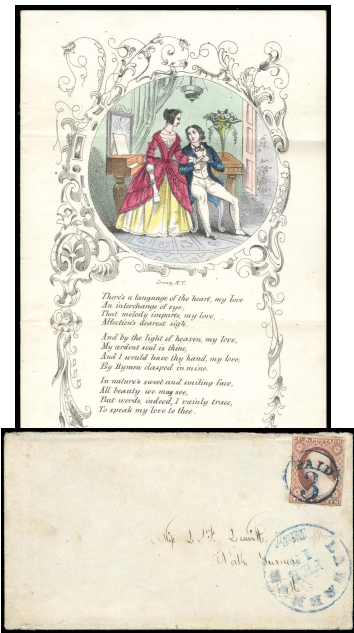 Strong, N.Y.
There's a language of the heart, my love
An interchange of eye,
That melody imparts, my love,
Affection's dearest sigh.
And by the light of heaven, my love,
My ardent soul is thine,
And I would have thy hand, my love,
By Hymen clasped in mine.
In nature's sweet and smiling face,
All beauty we may see,
But words, indeed, I vainly trace,
To speak my love to thee.
U.S. POSTAGE
PAID
3
Miss
Leavitt